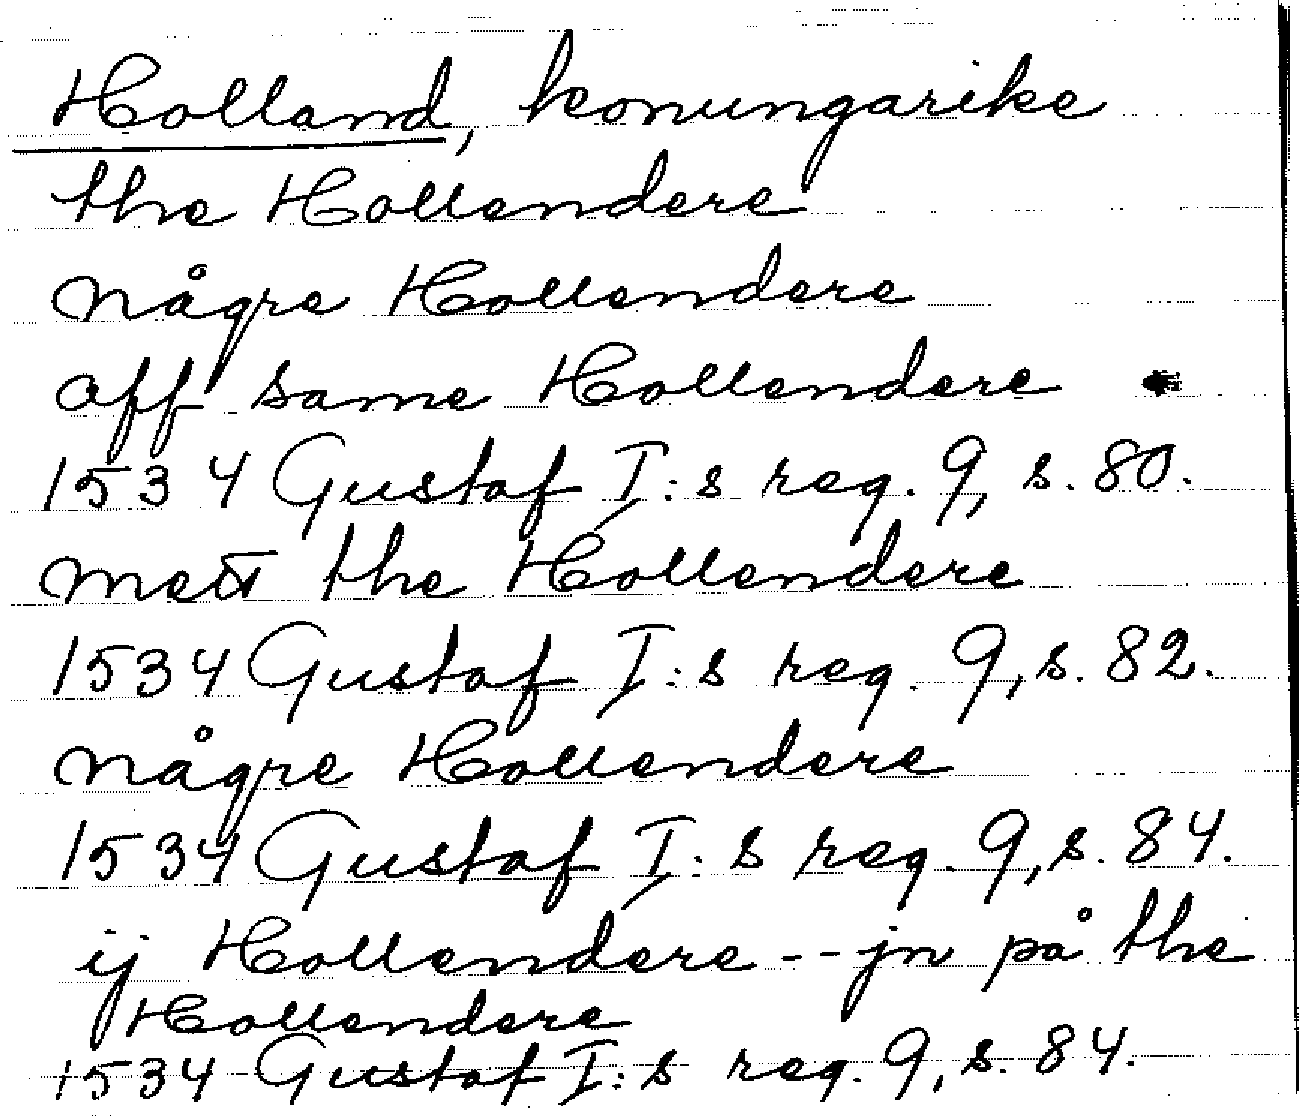 Holland, konungarike
the Hollendere
någre Hollendere
aff same Hollendere
1534 Gustaf I:s reg. 9, s. 80.
mett the Hollendere
1534 Gustaf I:s reg. 9, s. 82.
någre Hollendere
1534 Gustaf I:s reg. 9, s. 84.
ij Hollendere -- jn på the
Hollendere
1534 Gustaf I:s reg. 9, s. 84.